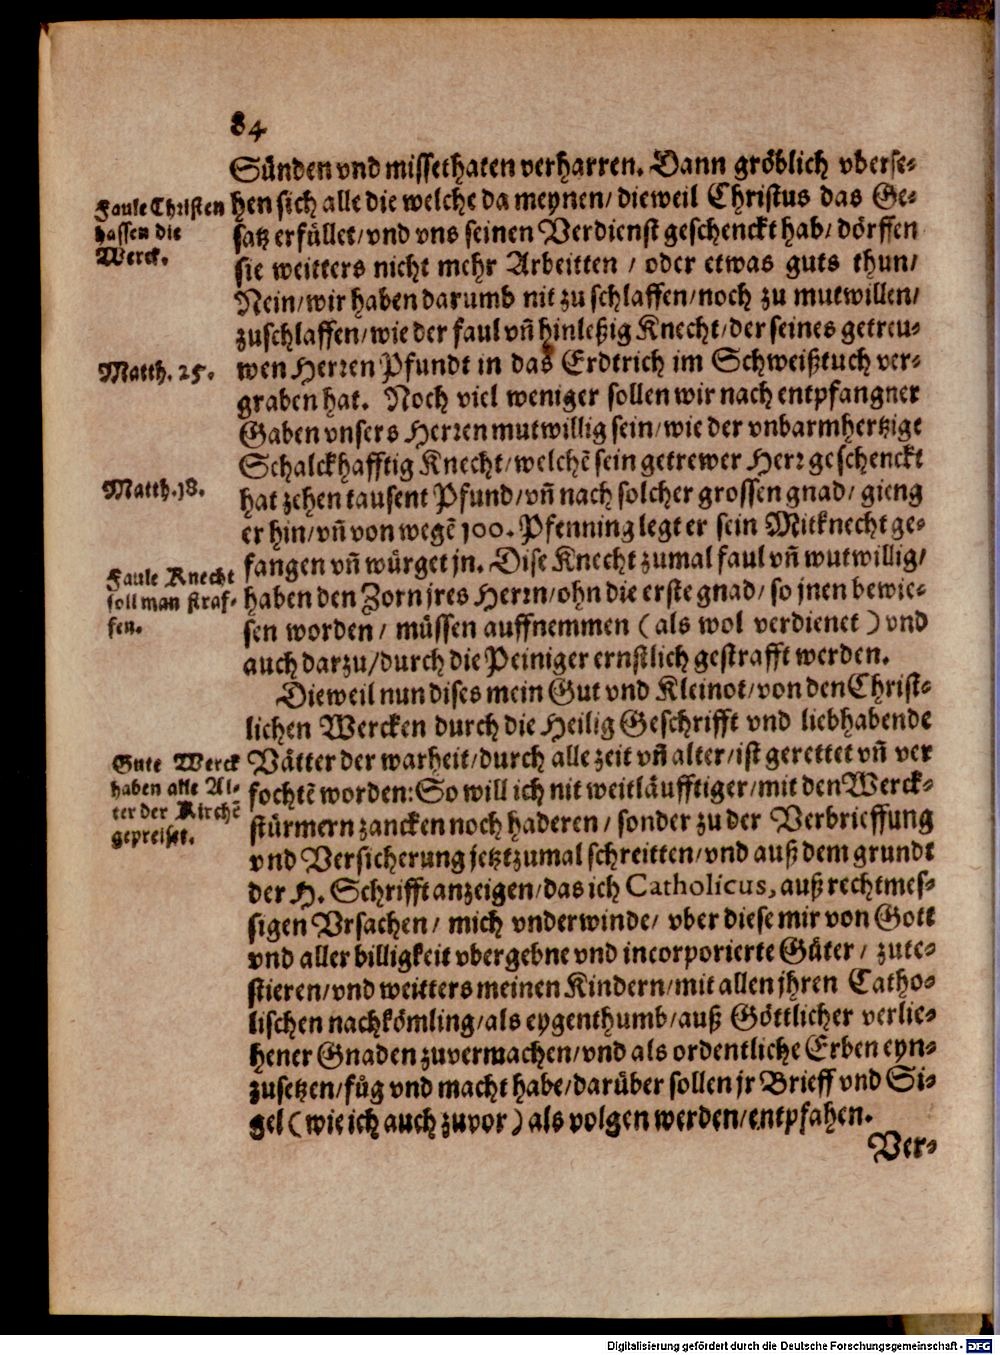 84
Sünden vnd missethaten verharren. Dann gröblich vberse-
Faule Christen
hassen die
Werck.
hen sich alle die welche da meynen/ dieweil Christus das Ge-
satz erfüllet/ vnd vns seinen Verdienst geschenckt hab/ dörffen
sie weitters nicht mehr Arbeitten / oder etwas guts thun/
Nein/ wir haben darumb nit zu schlaffen/ noch zu mutwillen/
zuschlaffen/ wie der faul vñ hinleßig Knecht/ der seines getreu-
Matth. 25.
wen Herren Pfundt in das Erdtrich im Schweißtuch ver-
graben hat. Noch viel weniger sollen wir nach entpfangner
Gaben vnsers Herren mutwillig sein/ wie der vnbarmhertzige
Schalckhafftig Knecht/ welchẽ sein getrewer Herr geschenckt
Matth. 18.
hat zehen tausent Pfund/ vñ nach solcher grossen gnad/ gieng
er hin/ vñ von wegẽ 100. Pfenning legt er sein Mitknecht ge-
fangen vñ würget jn. Dise Knecht zumal faul vñ wutwillig/
Faule Knecht
soll man straf-
fen.
haben den Zorn jres Herrn/ ohn die erste gnad/ so jnen bewie-
sen worden/ müssen auffnemmen (als wol verdienet) vnd
auch darzu/ durch die Peiniger ernstlich gestrafft werden.
Dieweil nun dises mein Gut vnd Kleinot/ von den Christ-
lichen Wercken durch die Heilig Geschrifft vnd liebhabende
Gute Werck
haben alle Al-
ter der Kirchẽ
gepreiset.
Vätter der warheit/ durch alle zeit vñ alter/ ist gerettet vñ ver
fochtẽ worden: So will ich nit weitläufftiger/ mit den Werck-
stürmern zancken noch haderen/ sonder zu der Verbrieffung
vnd Versicherung jetzt zumal schreitten/ vnd auß dem grundt
der H. Schrifft anzeigen/ das ich Catholicus, auß rechtmes-
sigen Vrsachen/ mich vnderwinde/ vber diese mir von Gott
vnd aller billigkeit vbergebne vnd incorporierte Güter/ zute-
stieren/ vnd weitters meinen Kindern/ mit allen jhren Catho-
lischen nachkömling/ als eygenthumb/ auß Göttlicher verlie-
hener Gnaden zuvermachen/ vnd als ordentliche Erben eyn-
zusetzen/ füg vnd macht habe/ darüber sollen jr Brieff vnd Si-
gel (wie ich auch zuvor) als volgen werden/ entpfahen.
Ver-
Digitalisierung gefördert durch die Deutsche Forschungsgemeinschaft - DFG